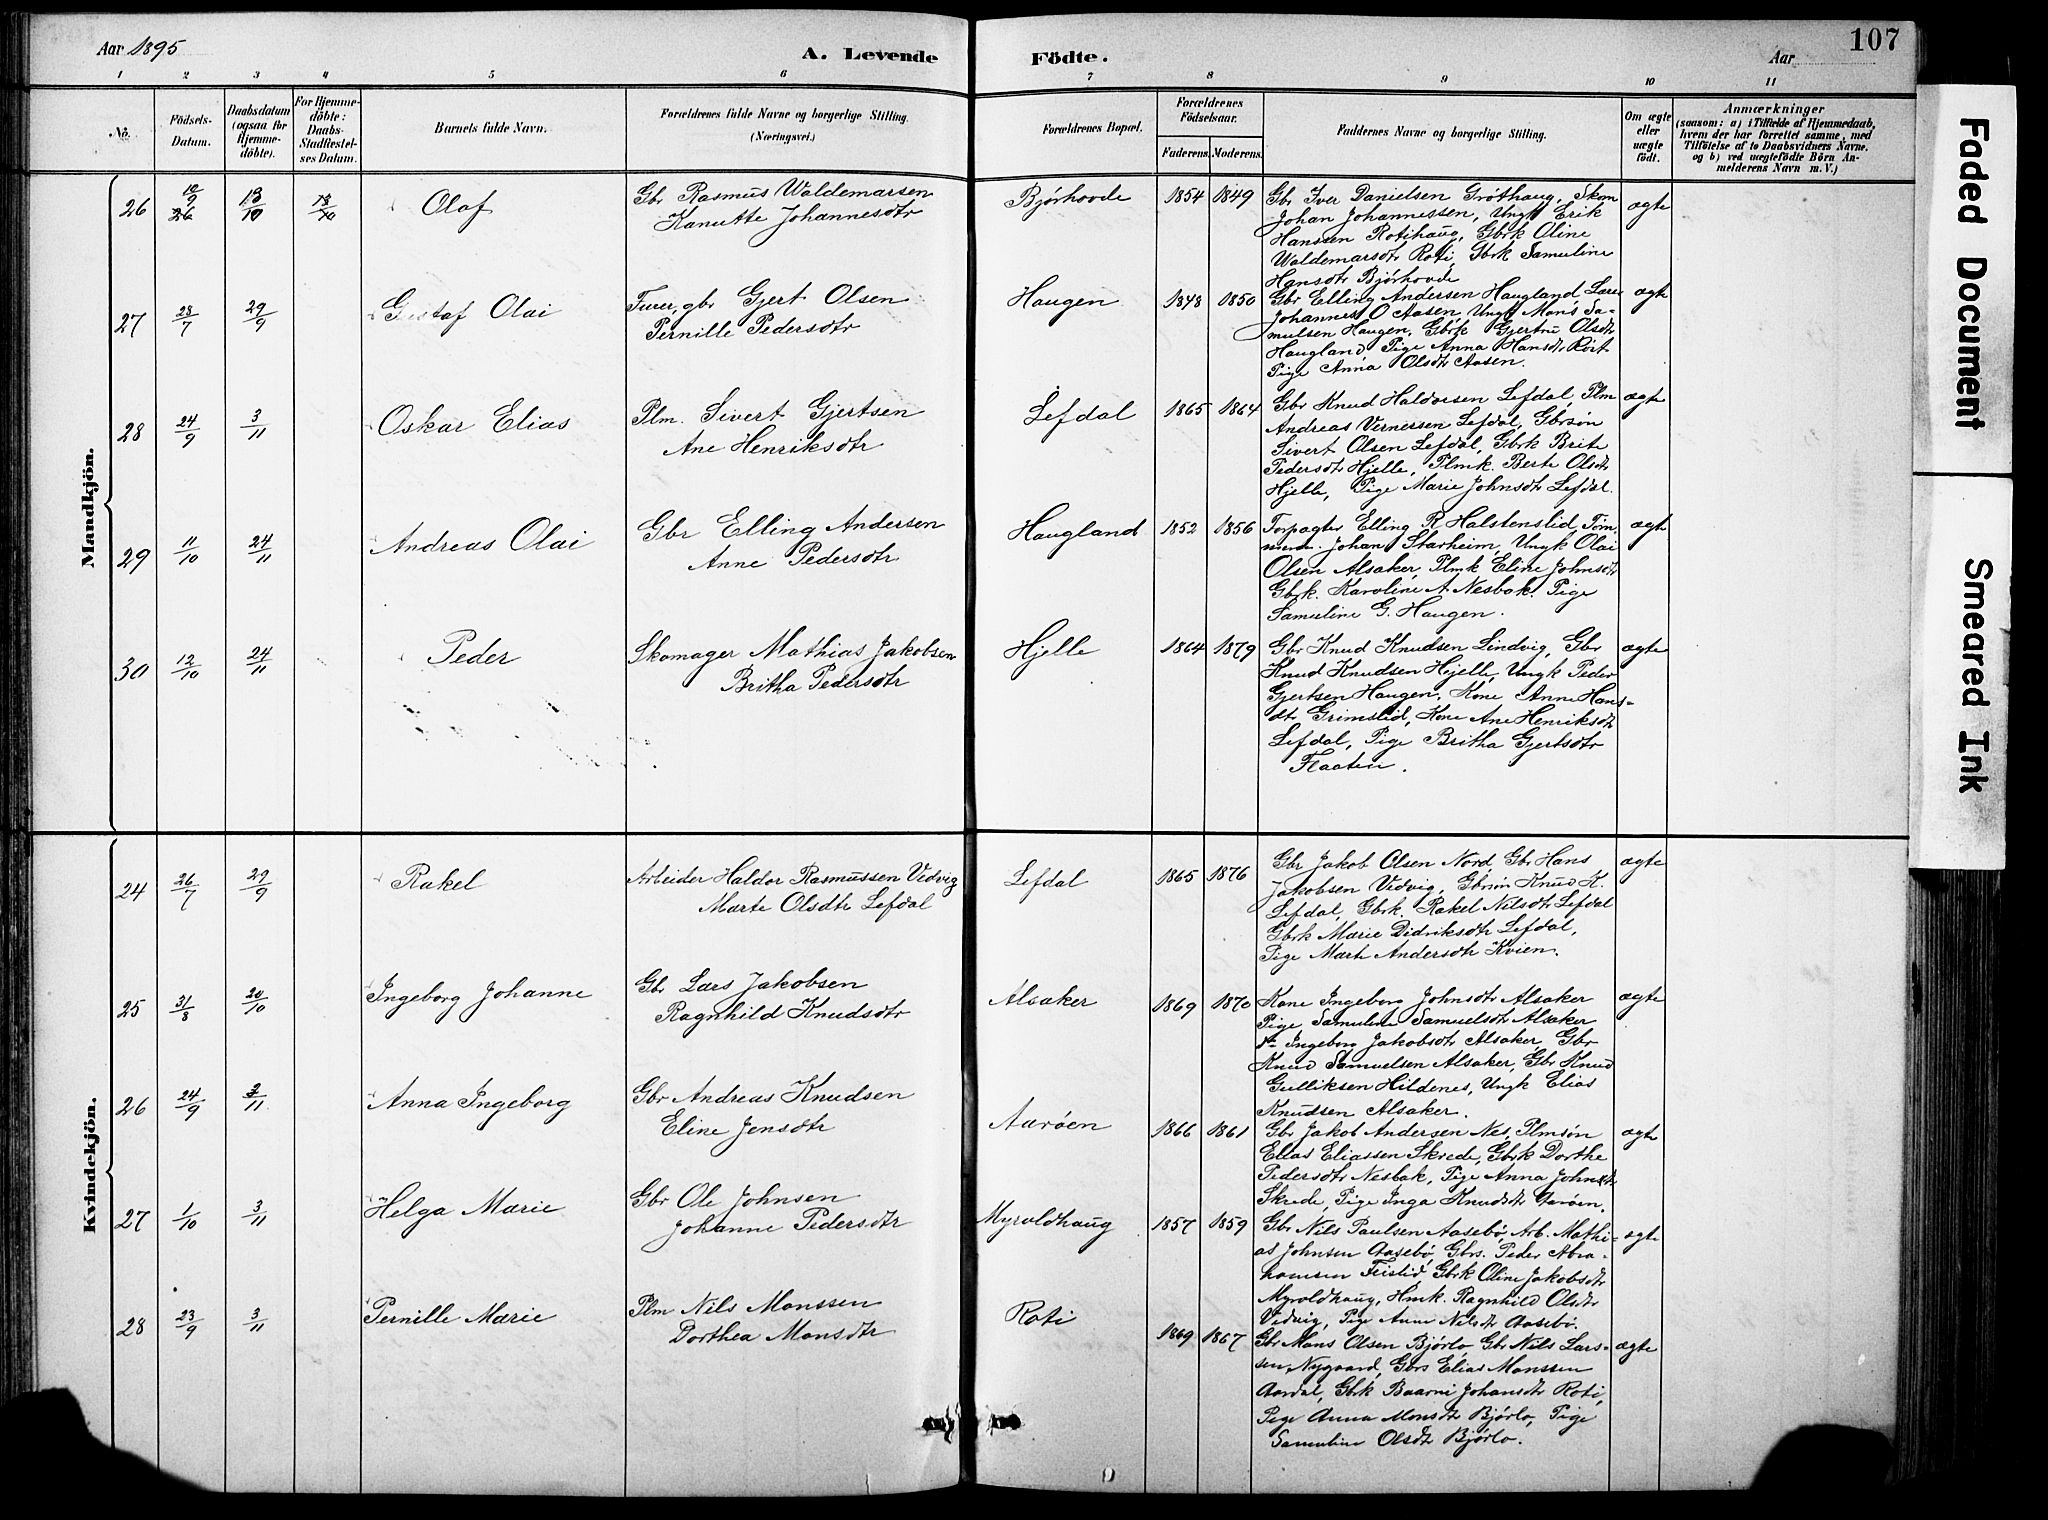 Aar 1895
A. Levende Födte.
Aar
107
1 2 3 4 5 6 7 8 9 10 11
No.
Födsels-Datum.
Daabsdatum (ogsaa for Hjemme-döbte).
For Hjemme-döbte: Daabs-Stadfæstel-ses Datum.
Barnets fulde Navn.
Forældrenes fulde Navne og borgerlige Stilling. (Næringsvei.)
Forældrenes Bopæl.
Forældrenes Födselsaar.
Faderens. Moderens.
Faddernes Navne og borgerlig Stilling.
Om ægte eller uægte födt.
Anmærkninger
(saasom: a) i Tilfælde af Hjemmedaab,
hvem der har forrettet samme, med
Tilföielse af to Daabsvidners Navne.
og b) ved uægtefödte Börn An-
melderens Navn m. V.)
Mandkjön.
26 13/10 13/10 Olaf
Gbr Rasmus Waldemarsen
Kanutte Johannesdtr
Bjørhovde 1854 1849
Gbr Iver Danielsen Grøthaug, Skom
Johan Johannessen, Ungk Erik
Hanssen Rotihaug, Gbrk Oline
Waldemarsdtr Roti, Gbrk Samuline
Hansdtr Bjørhovde
ægte
27 28/7 29/9 Gustaf Olai
Gbr Gjert Olsen
Pernille Pedersdtr
Haugen 1848 1850
Gbr Elling Andersen Haugland, Lærer
Johannes O Aasen, Ungk Mons Sa-
muelsen Haugen, Gbrk Gjertru Olsdt
Haugland, Pige Anna Hansdtr Røit
Pige Anna Olsdtr Aasen.
ægte
28 24/9 3/11 Oskar Elias
Plm. Sivert Gjertsen
Ane Henriksdtr
Lefdal 1865 1864
Gbr Knud Haldorsen Lefdal, Plm
Andreas Vernessen Lefdal, Gbrsøn
Sivert Olsen Lefdal, Gbrk Brite
Pedersdtr Hjelle, Plmk. Berte Olsdtr
Hjelle, Pige Marie Johnsdtr Lefdal.
ægte
29 11/10 24/11 Andreas Olai
Gbr Elling Andersen
Anne Pedersdtr
Haugland 1852 1856
Forpagter Elling R Halstenslid, Tøm-
merm. Johan Starheim, Ungk Olai
Olsen Alsaker, Plmk Eline Johnsdtr
Gbrk. Karoline A. Nesbak. Pige
Samuline G. Haugen.
ægte
30 12/10 24/11 Peder
Skomager Mathias Jakobsen
Britha Pedersdtr
Hjelle 1864 1879
Gbr Knud Knudsen Lindvig, Gbr
Knud Knudsen Hjelle, Ungk Peder
Gjertsen Haugen, Kone Anne Hans-
dtr Grimslid, Kone Ane Henriksdtr
Lefdal, Pige Britha Gjertsdtr
Flaaten.
ægte
Kvindekjön.
24 26/7 29/9 Rakel
Arbeider Haldor Rasmussen Vedvig
Marte Olsdtr Lefdal
Lefdal 1865 1876
Gbr Jakob Olsen Nord Gbr Hans
Jakobsen Vedvig, Gbrsøn Knud K.
Lefdal, Gbrk. Rakel Nilsdtr Lefdal
Gbrk Marie Didriksdtr Lefdal,
Pige Mart Andersdtr Kvien.
ægte
25 31/8 20/10 Ingeborg Johanne
Gbr Lars Jakobsen
Ragnhild Knudsdtr
Alsaker 1869 1870
Kone Ingeborg Johnsdtr Alsaker
Pige Samuline Samuelsdtr Alsaker
Ingeborg Jakobsdtr Alsaker, Gbr
Knud Samuelsen Alsaker, Gbr Knud
Gulliksen Hildenes, Ungk Elias
Knudsen Alsaker.
ægte
26 24/9 3/11 Anna Ingeborg
Gbr Andreas Knudsen
Eline Jensdtr
Aarøen 1866 1861
Gbr Jakob Andersen Nes, Plmsøn
Elias Eliassen Skrede, Gbrk Dorthe
Pedersdtr Nesbak, Pige Anna Johnsdtr
Skrede, Pige Inga Knudsdtr Aarøen.
ægte
27 1/10 3/11 Helga Marie
Gbr Ole Johnsen
Johanne Pedersdtr
Myroldhaug 1857 1859
Gbr Nils Paulsen Aasebø, Arb. Mathi-
as Johnsen Aasebø, Gbrs. Peder Abra-
hamsen Feislid, Gbrk Oline Jakobsdtr
Myroldhaug, Hmk. Ragnhild Olsdtr
Vedvig, Pige Anne Nilsdtr Aasebø.
ægte
28 23/9 3/11 Pernille Marie
Plm Nils Monssen
Dorthea Monsdtr
Roti 1869 1867
Gbr Mons Olsen Bjørlo, Gbr Nils Lars-
sen Nygaard, Gbrs Elias Monssen
Aardal, Gbrk Baarni Johansdtr Roti,
Pige Anna Monsdtr Bjørlo, Pige
Samuline Olsdtr Bjørlo.
ægte
Faded Document
Smeared Ink